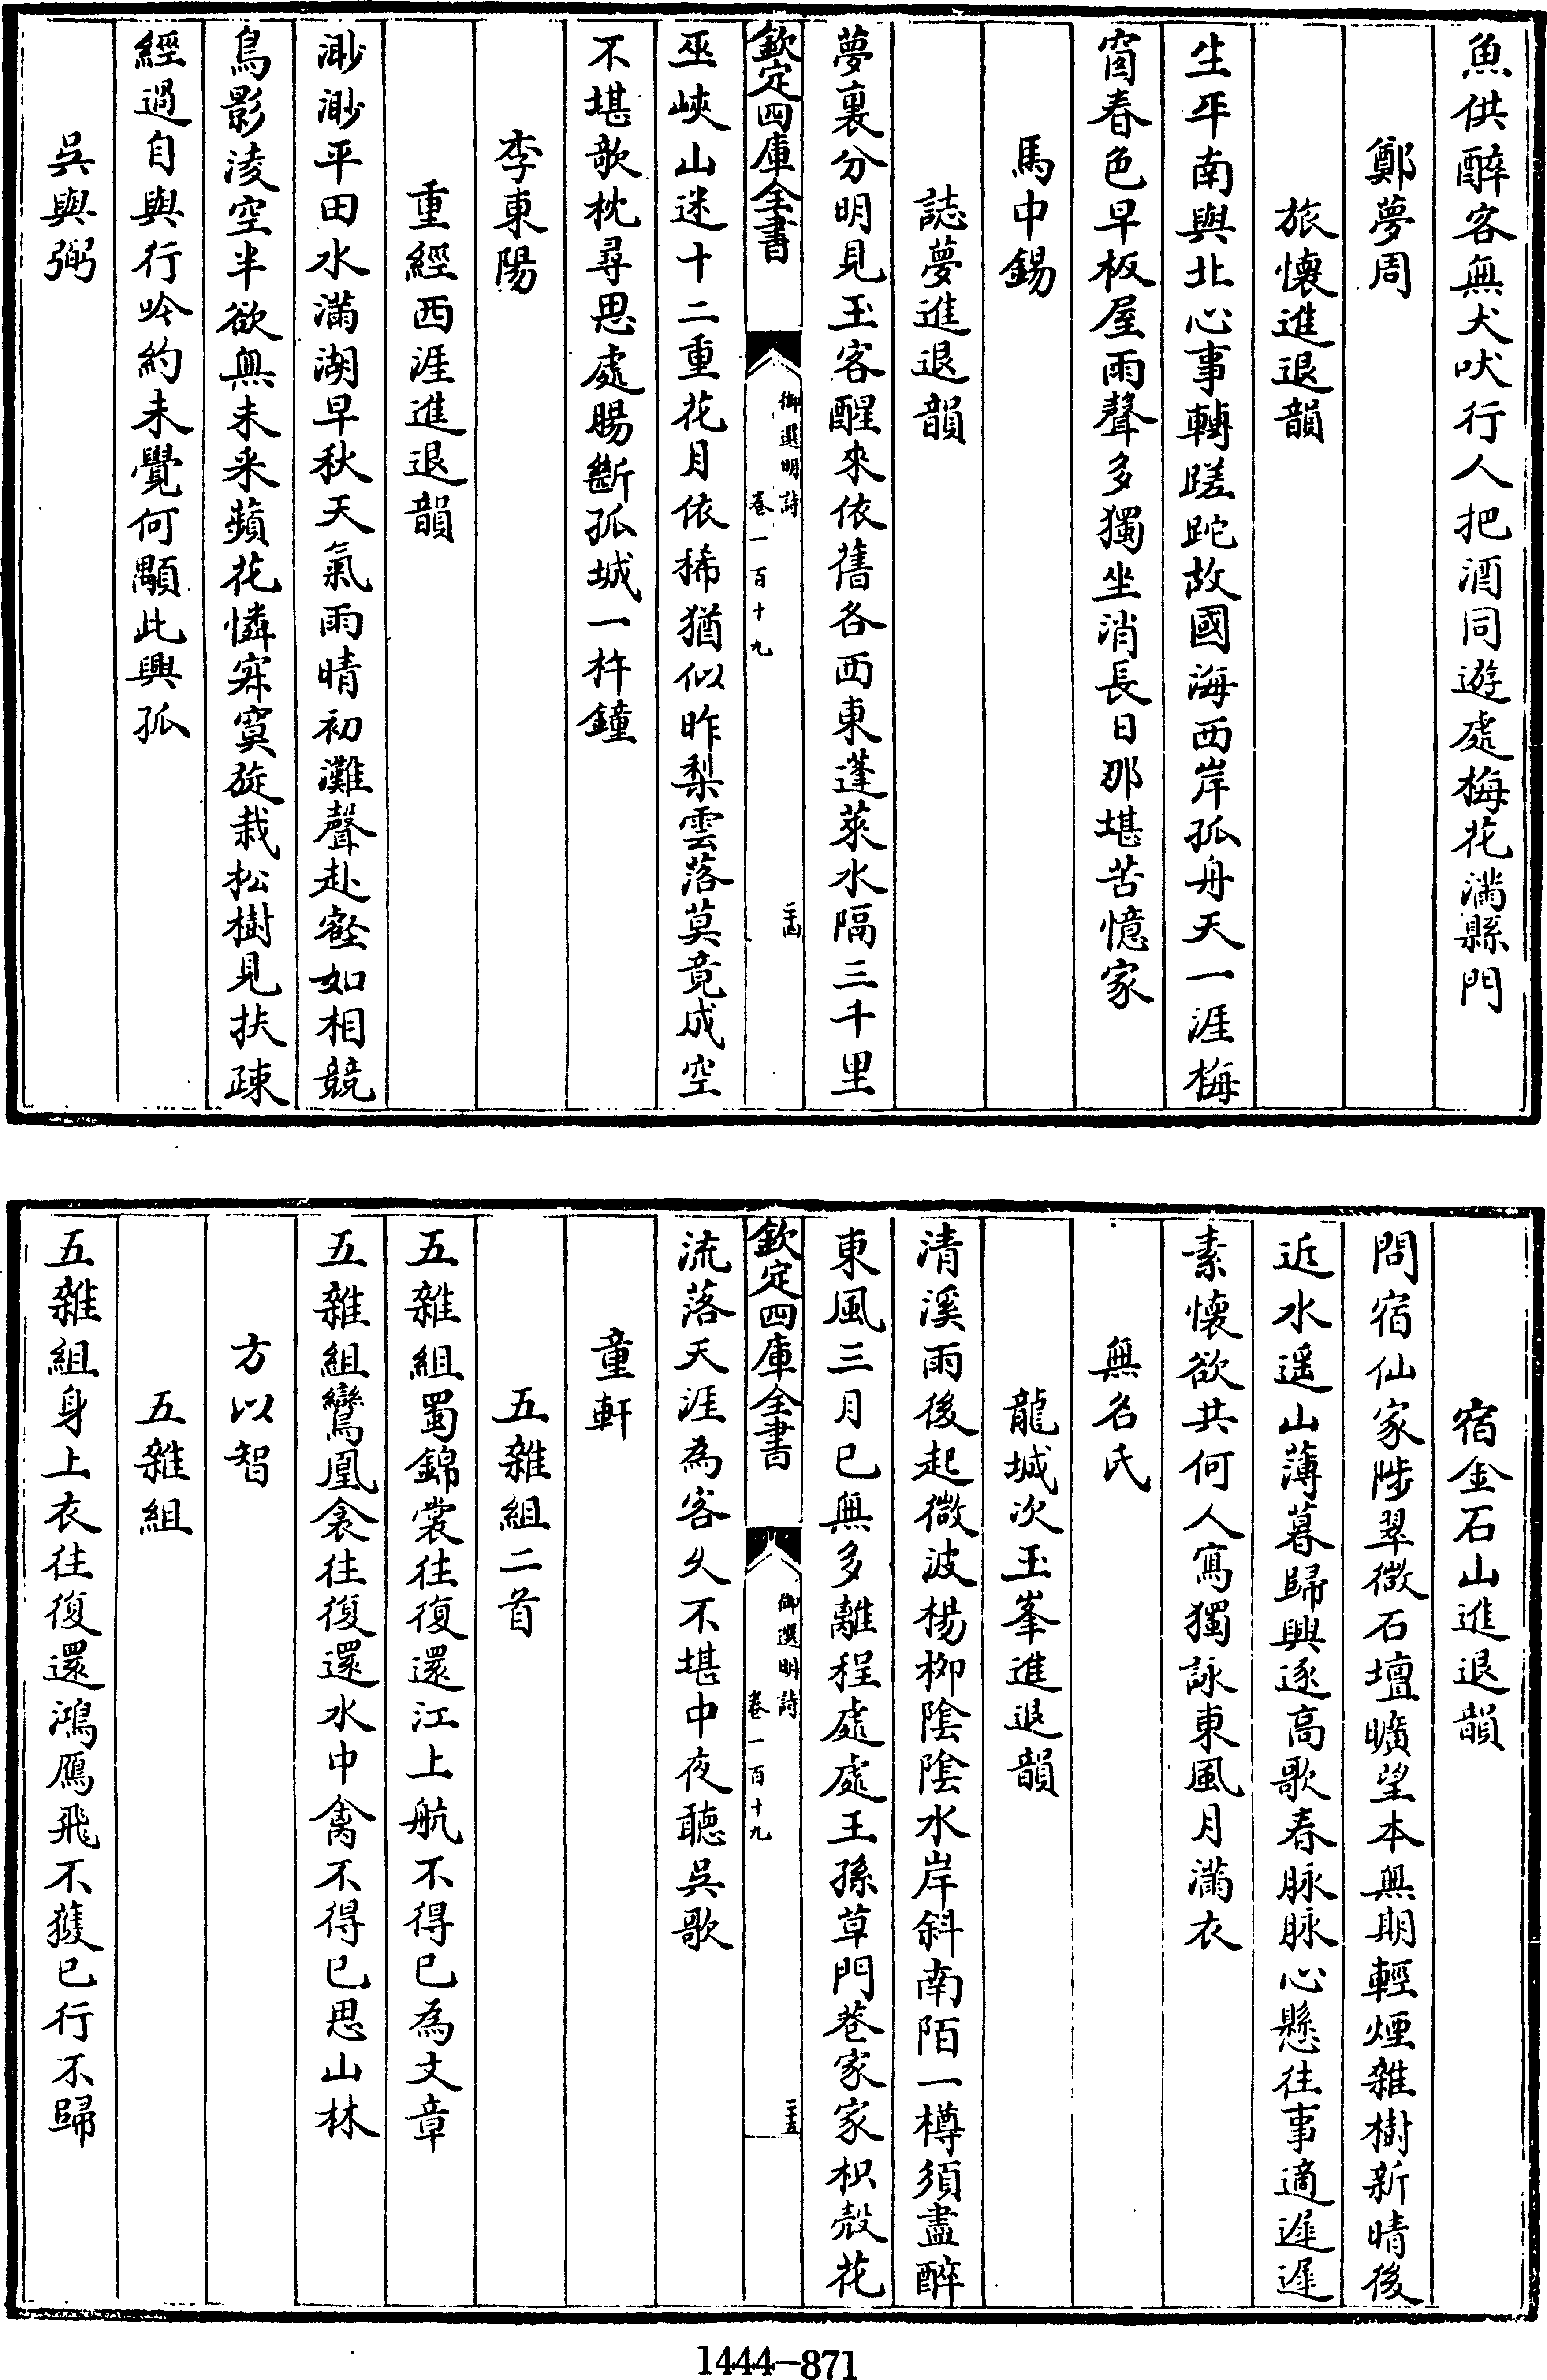 魚供醉客無犬吠行人把酒同遊處梅花滿縣門
鄭夢周
旅懷進退韻
生平南與北心事轉蹉跎故國海西岸孤舟天一涯梅
窗春色早板屋雨聲多獨坐消長日那堪苦憶家
馬中錫
誌夢進退韻
夢裏分明見玉客醒來依舊各西東蓬萊水隔三千里
欽定四庫全書
御選明詩
卷一百十九
二十四
巫峽山迷十二重花月依稀猶似昨梨雲落莫竟成空
不堪欹枕尋思處腸斷孤城一杵鐘
李東陽
重經西涯進退韻
渺渺平田水滿湖早秋天氣雨晴初灘聲赴壑如相競
鳥影淩空半欲無未采蘋花憐寂寞旋栽松樹見扶疎
經過自與行吟約未覺何顒此興孤
吳與弼
宿金石山進退韻
問宿仙家陟翠微石壇曠望本無期輕煙雜樹新晴後
近水遥山薄暮歸興逐高歌春脉脉心懸往事適遲遲
素懷欲共何人寫獨詠東風月滿衣
無名氏
龍城次玉峯進退韻
清溪雨後起微波楊柳陰陰水岸斜南陌一樽須盡醉
東風三月已無多離程處處王孫草門巷家家枳殼花
欽定四庫全書
御選明詩
卷一百十九
二十五
流落天涯為客久不堪中夜聽吳歌
童軒
五雜組二首
五雜組蜀錦裳往復還江上航不得已為文章
五雜組鸞凰衾往復還水中禽不得已思山林
方以智
五雜組
五雜組身上衣往復還鴻鴈飛不獲已行不歸
1444-871